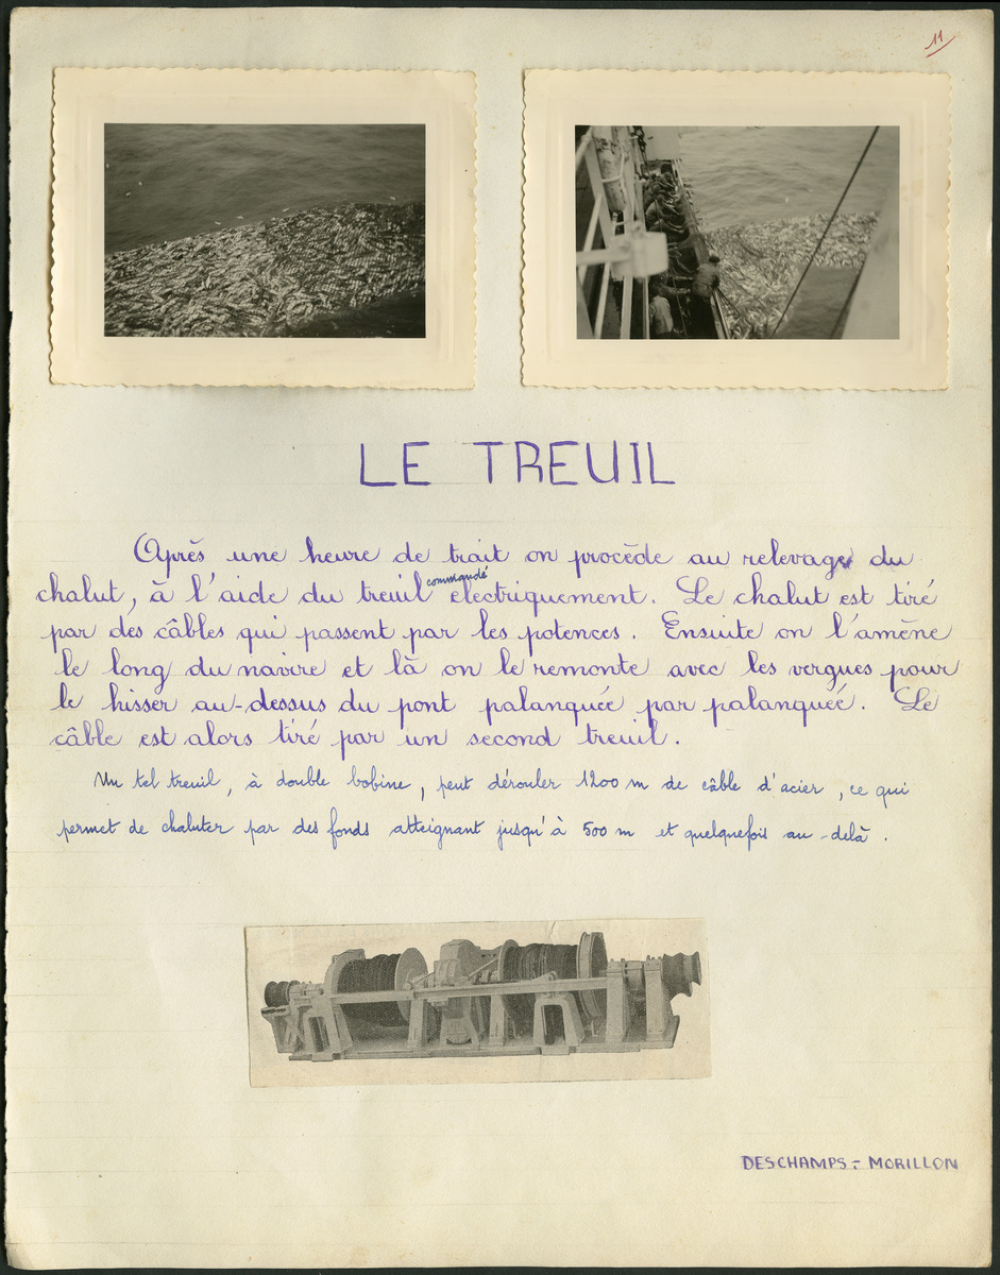 11
LE TREUIL
Après une heure de trait on procède au relevage du
chalut, à l'aide du treuil commandé électriquement. Le chalut est tiré
par des câbles qui passent par les potences. Ensuite on l'amène
le long du navire et là on le remonte avec les vergues pour
le hisser au-dessus du pont palanquée par palanquée. Le
câble est alors tiré par un second treuil.
Un tel treuil, à double bobine, peut dérouler 1200 m de câble d'acier, ce qui
permet de chaluter par des fonds atteignant jusqu'à 500 m et quelquefois au-delà.
DESCHAMPS - MORILLON